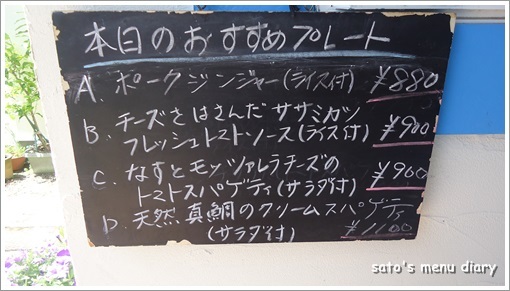 本日のおすすめプレート
A. ポークジンジャー(ライス付) ¥880
B. チーズをはさんだササミカツ
フレッシュトマトソース(ライス付) ¥900
C. なすとモッツァレラチーズの
トマトスパゲティ(サラダ付) ¥900
D. 天然真鯛のクリームスパゲティ
(サラダ付) ¥1100
sato's menu diary